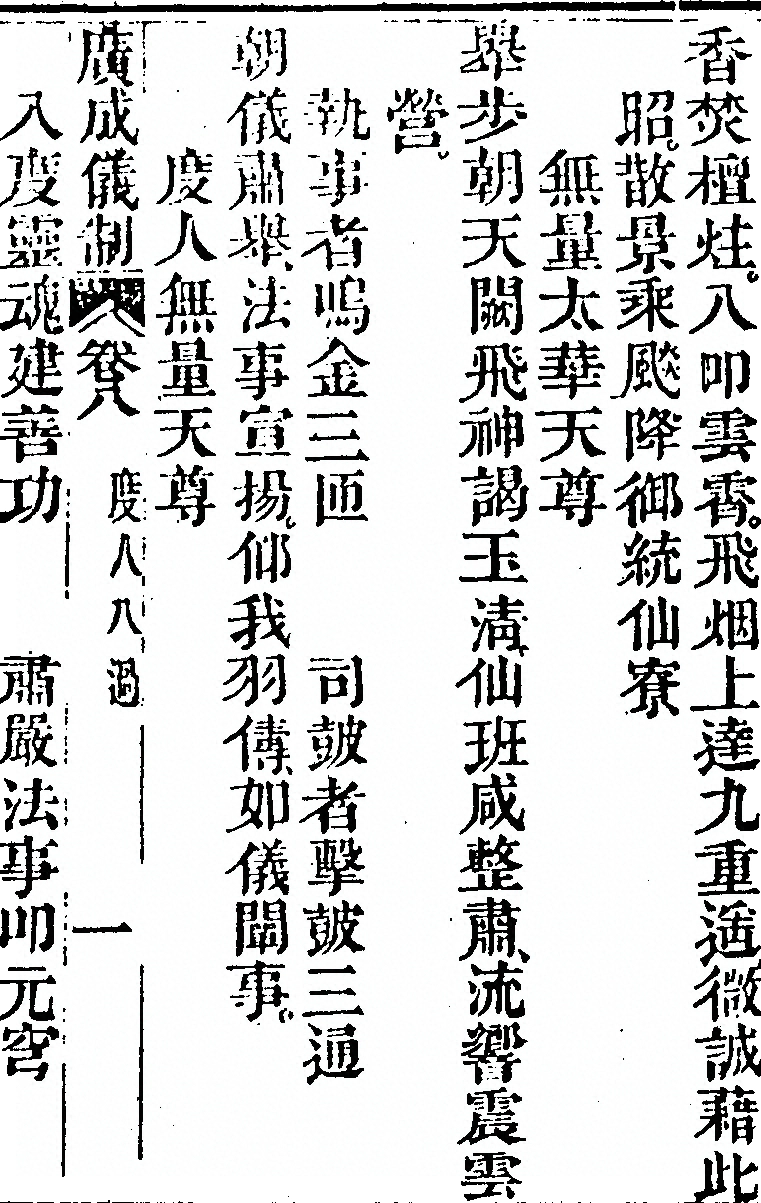 香焚檀炷。八叩雲霄。飛烟上達九重遥。微誠藉此
昭。散景乘飈降御統仙寮
無量太華天尊
舉步朝天闕飛神謁玉清、仙班咸整肅、流響震雲
營。
執事者鳴金三匝　司皷者擊皷三通
朝儀肅舉、法事宣揚。仰我羽傳、如儀闡事。
度人無量天尊
廣成儀制　卷八　度人八過　一
八度靈魂建善功　肅嚴法事叩元穹